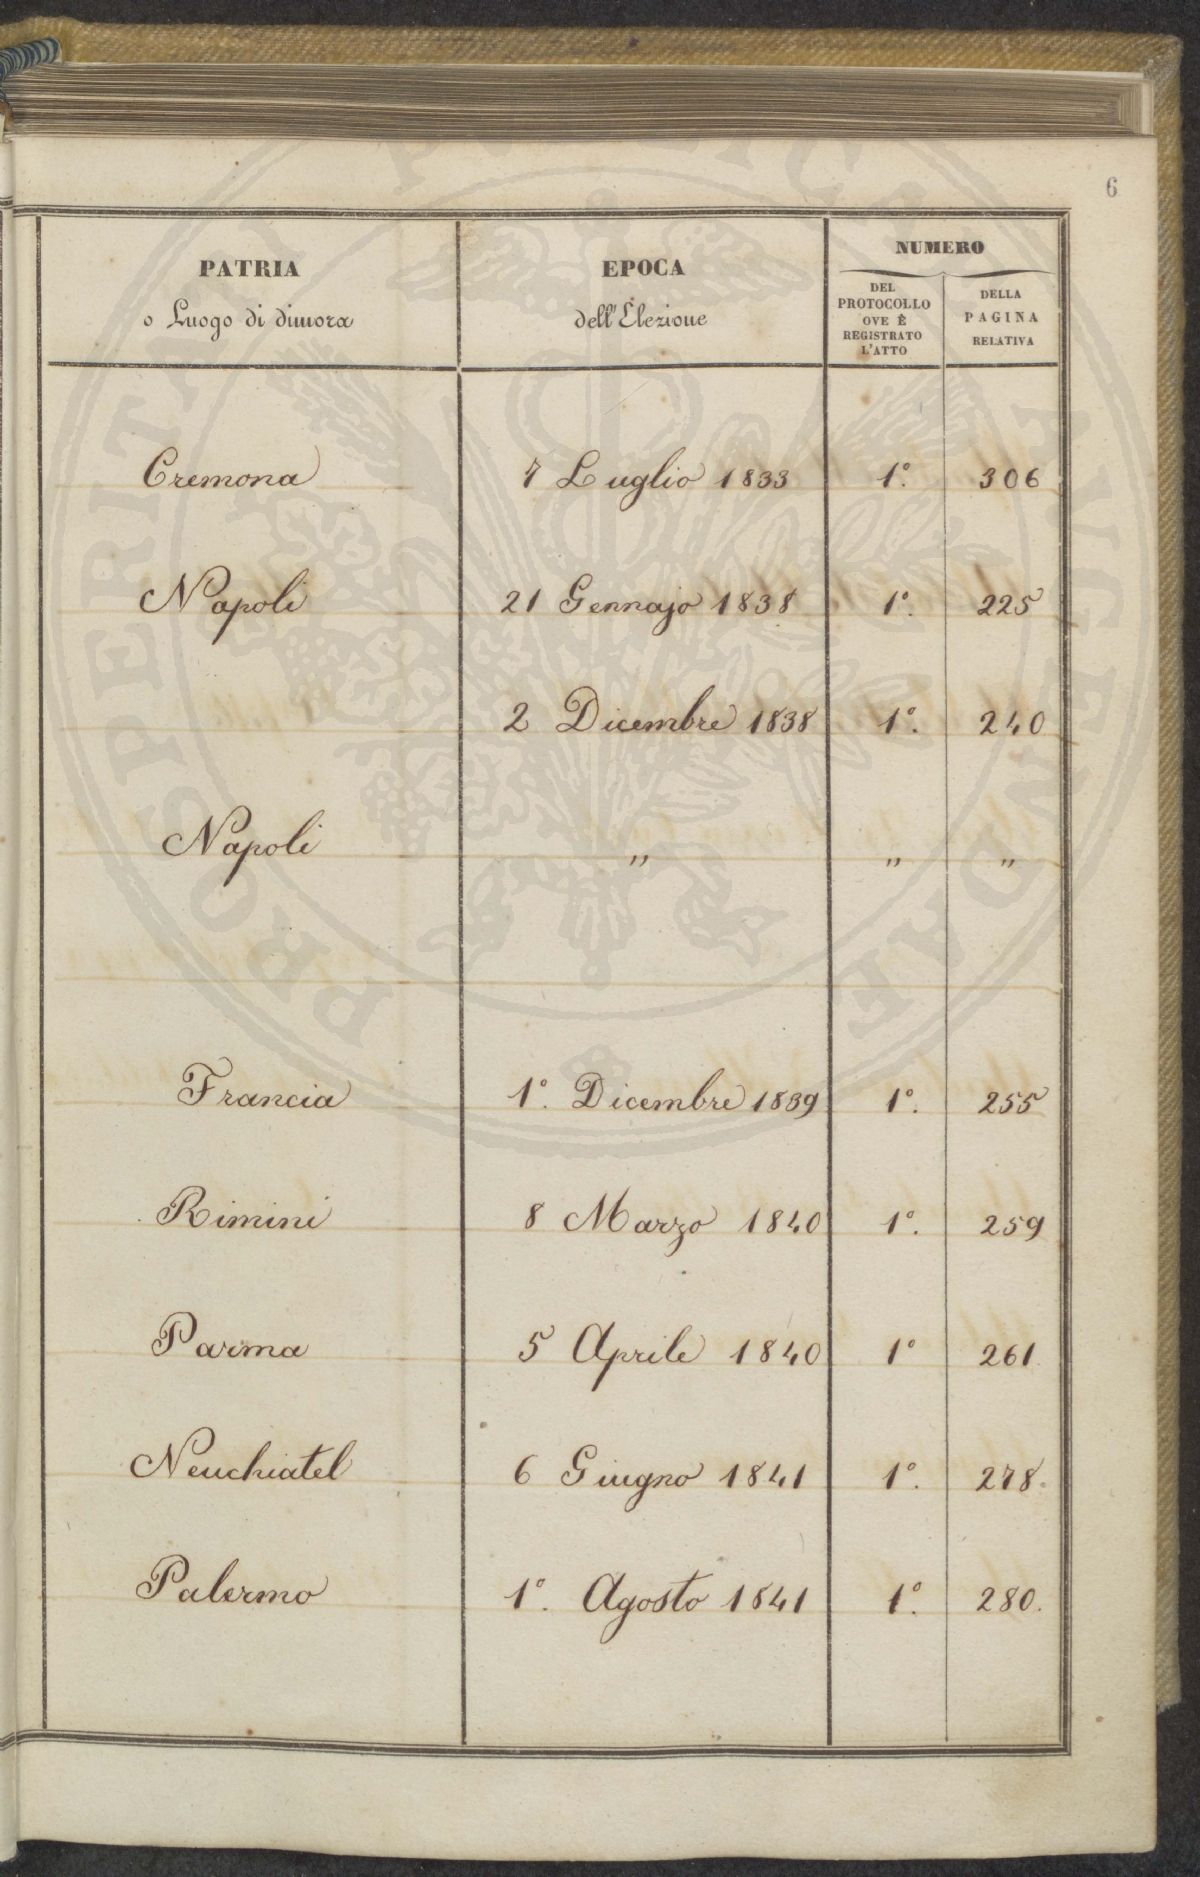 6
PATRIA
o Luogo di dimora
EPOCA
dell'Elezione
NUMERO
DEL
PROTOCOLLO
OVE È
REGISTRATO
L'ATTO
DELLA
PAGINA
RELATIVA
Cremona 7 Luglio 1833 1º. 306
Napoli 21 Gennajo 1838 1º. 225
2 Dicembre 1838 1º. 240
Napoli " " "
Francia 1º. Dicembre 1839 1º. 255
Rimini 8 Marzo 1840 1º. 259
Parma 5 Aprile 1840 1º 261
Neuchiatel 6 Giugno 1841 1º. 278.
Palermo 1º. Agosto 1841 1º. 280.
PROSPERITATI PUBLICAE AUGENDAE